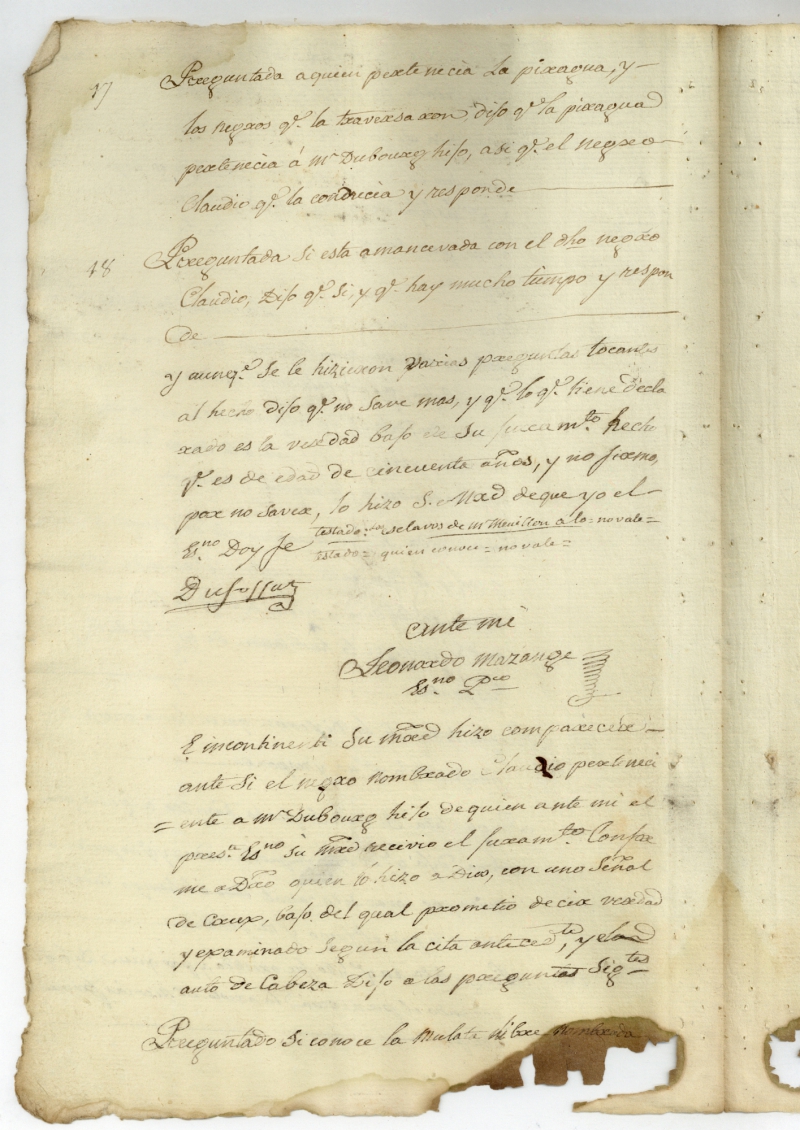 17 Preguntada a quien pertenecia La piragua, y
los negros qe. la traversaron dijo qe. la piragua
pertenecia á Mr Dubourg hijo, asi qe. el negro
Claudio qe. la conducia y responde
18 Preguntada Si esta amancevada con el dho negro
Claudio, Dijo qe. Si, y qe. hay mucho tiempo y respon
de
y aunqe. Se le hizieron Varias preguntas tocantes
al hecho dijo qe. no Save mas, y qe. lo qe. tiene decla
rado es la verdad bajo de Su juramto. hecho
qe. es de edad de cincuenta años, y no firmo,
por no saver, lo hizo S. Mrd de que yo el
Esno Doy fe testado= esclavos de Mr a lo= no vale=
testado= quien conoce= no vale=
Dufossat
Ante mi
Leonardo Mazange
Esno Pco
E incontinenti Su Mrd hizo comparecer
ante Si el negro nombrado Claudio perteneci
=ente a Mr Dubourg hijo de quien ante mi el
prest. Esno Su Mrd recivio el juramto. Confor
me a Dro quien ló hizo a Dios, con uno Señal
de Crux, bajo del qual prometio decir verdad
y examinado Segun la cita antecedte, y el
auto de Cabeza Dijo a las preguntas Sigtes
Preguntado Si conoce la Mulata libre nombrada